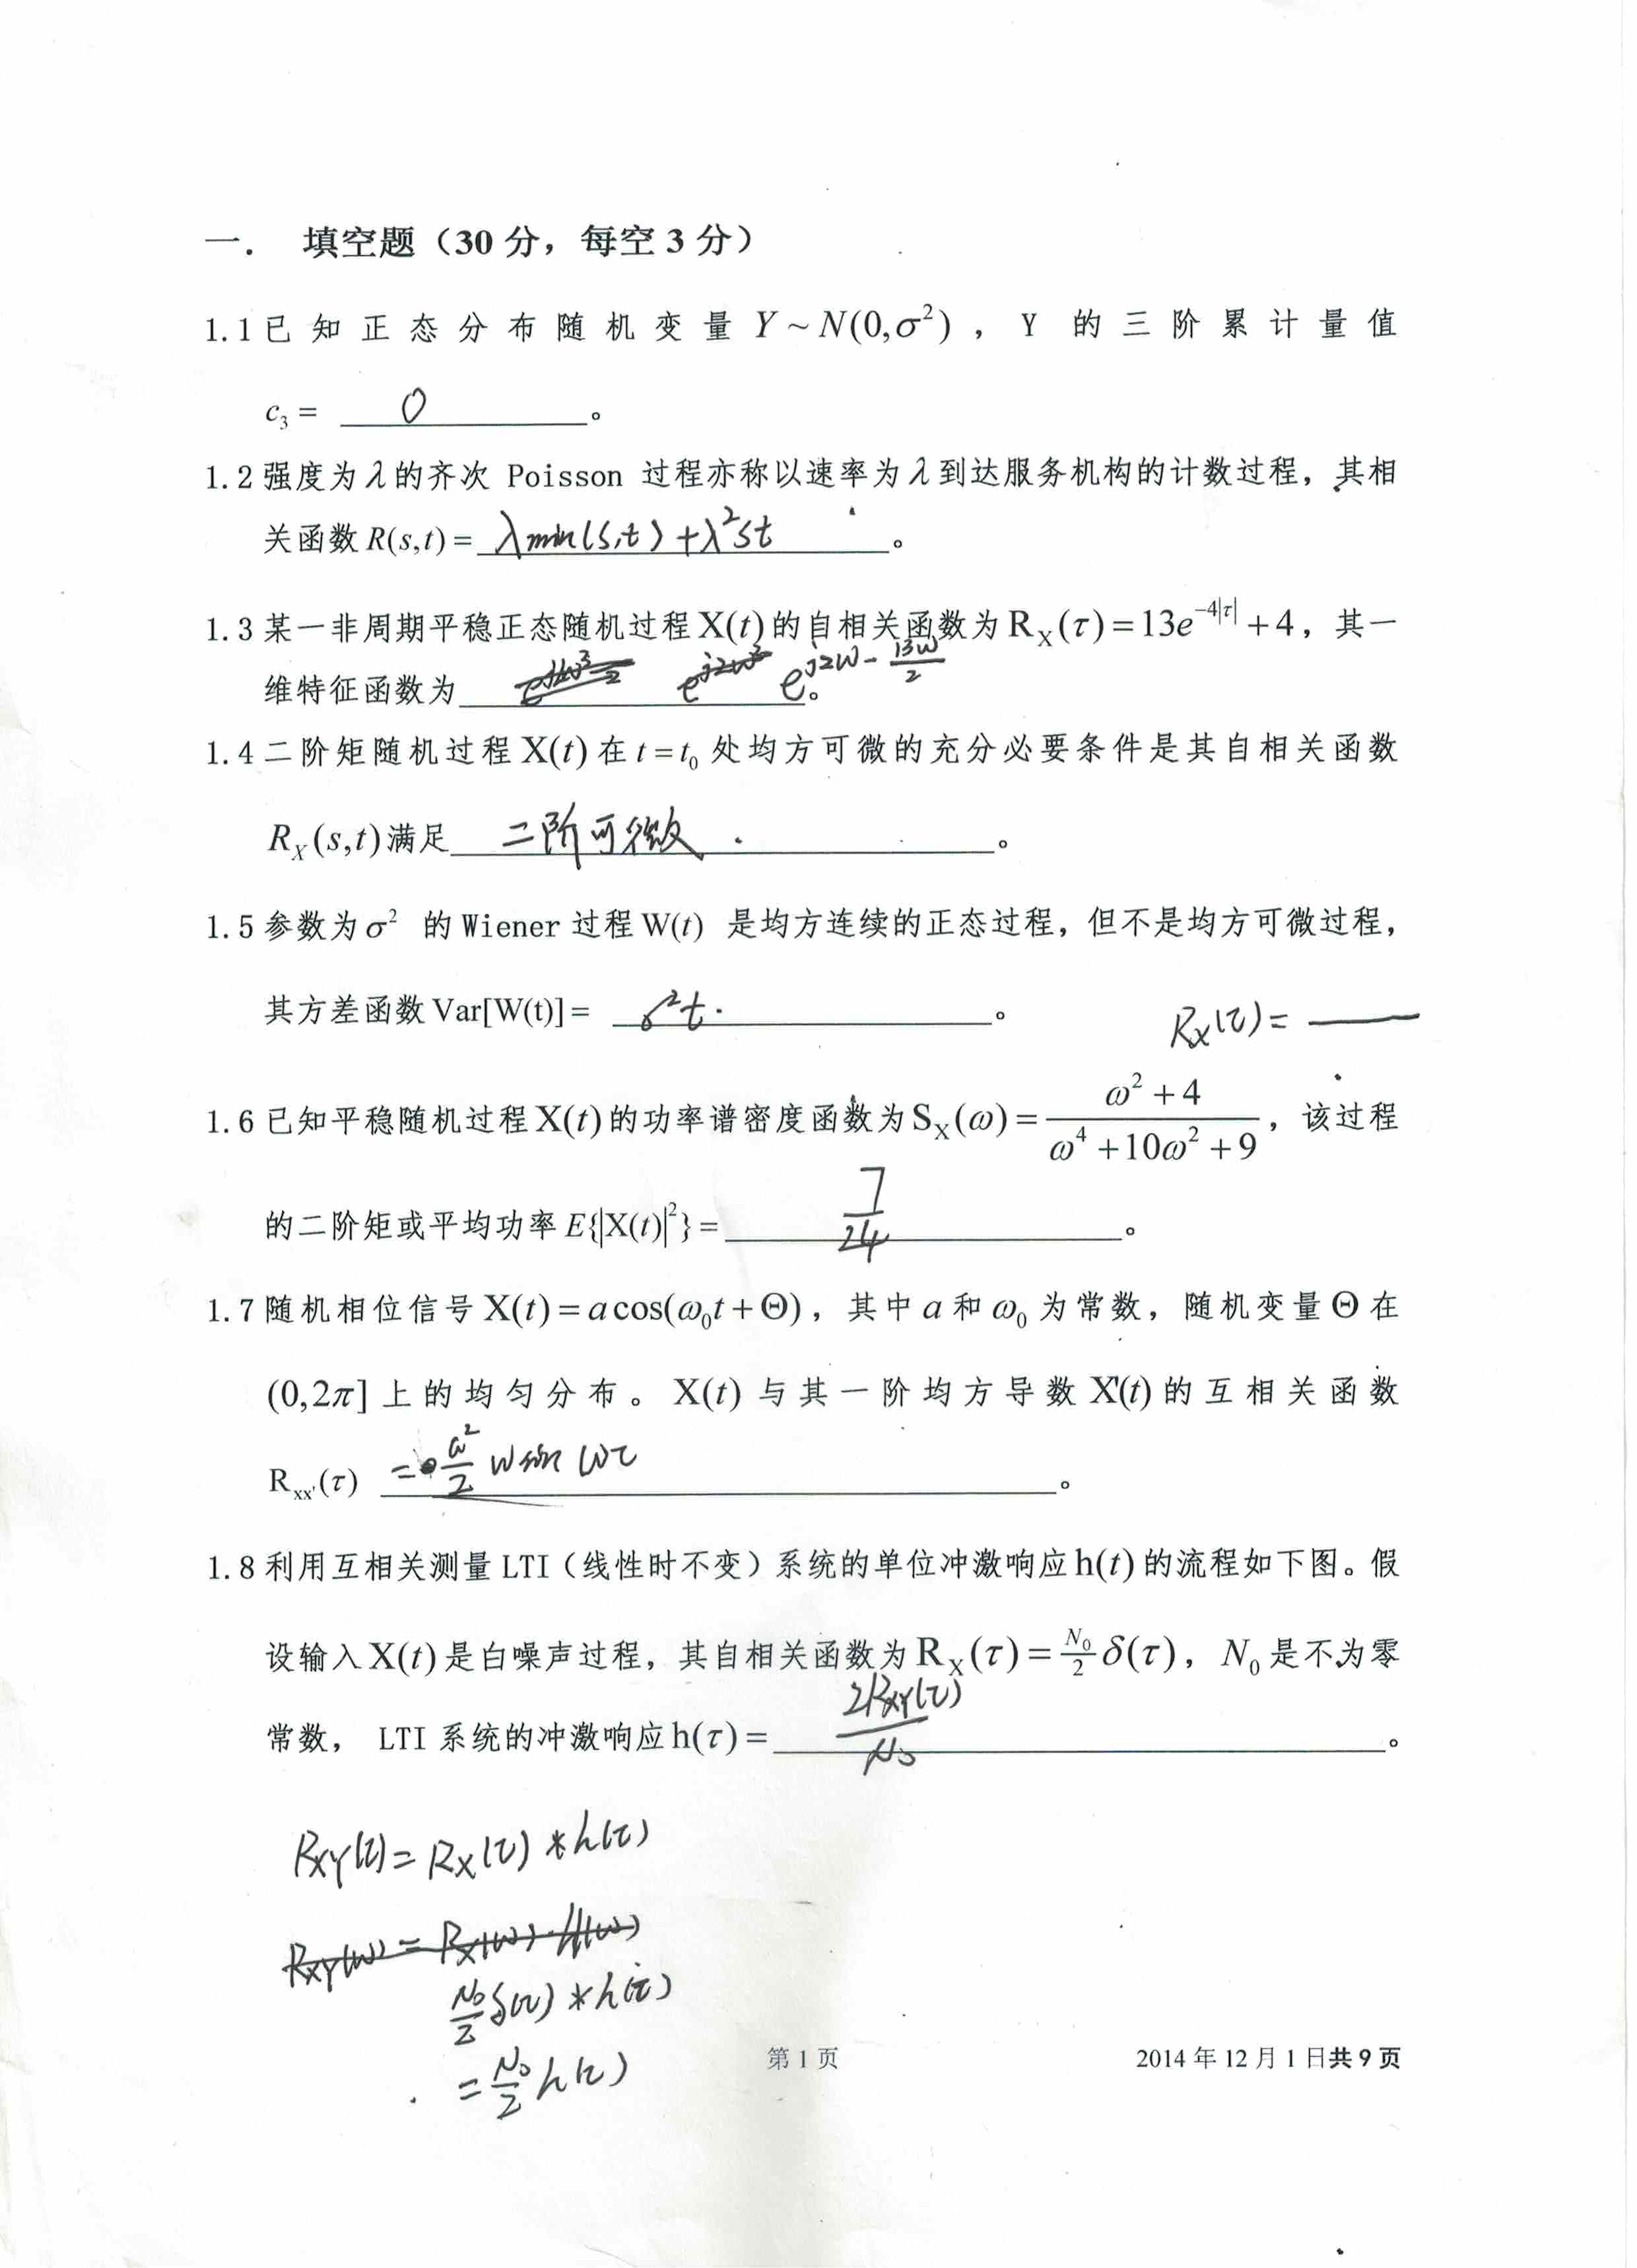 一. 填空题（30 分，每空 3 分）
1.1 已知正态分布随机变量 Y ~ N(0,σ²)， Y 的三阶累计量值
c₃ = 0 。
1.2 强度为 λ 的齐次 Poisson 过程亦称以速率为 λ 到达服务机构的计数过程，其相
关函数 R(s,t) = λmin(s,t)+λ²st 。
1.3 某一非周期平稳正态随机过程 X(t) 的自相关函数为 R_X(τ) = 13e^{-4|τ|} + 4，其一
维特征函数为 e^{j2ω - 13ω/2} 。
1.4 二阶矩随机过程 X(t) 在 t = t₀ 处均方可微的充分必要条件是其自相关函数
R_X(s,t) 满足 二阶可微. 。
1.5 参数为 σ² 的 Wiener 过程 W(t) 是均方连续的正态过程，但不是均方可微过程，
其方差函数 Var[W(t)] = σ²t. 。
R_X(τ) = —
1.6 已知平稳随机过程 X(t) 的功率谱密度函数为 S_X(ω) = (ω² + 4)/(ω⁴ + 10ω² + 9)，该过程
的二阶矩或平均功率 E{|X(t)|²} = 7/24 。
1.7 随机相位信号 X(t) = a cos(ω₀t + Θ)，其中 a 和 ω₀ 为常数，随机变量 Θ 在
(0,2π] 上的均匀分布。X(t) 与其一阶均方导数 X'(t) 的互相关函数
R_{xx'}(τ) = a²/2 ω sin ωτ 。
1.8 利用互相关测量 LTI（线性时不变）系统的单位冲激响应 h(t) 的流程如下图。假
设输入 X(t) 是白噪声过程，其自相关函数为 R_X(τ) = N₀/2 δ(τ)，N₀ 是不为零
常数， LTI 系统的冲激响应 h(τ) = 2R_{XY}(τ)/N₀ 。
R_{XY}(τ) = R_X(τ) * h(τ)
R_{XY}(ω) = R_X(ω)·H(ω)
N₀/2 δ(τ) * h(τ)
= N₀/2 h(τ)
第 1 页 2014 年 12 月 1 日共 9 页